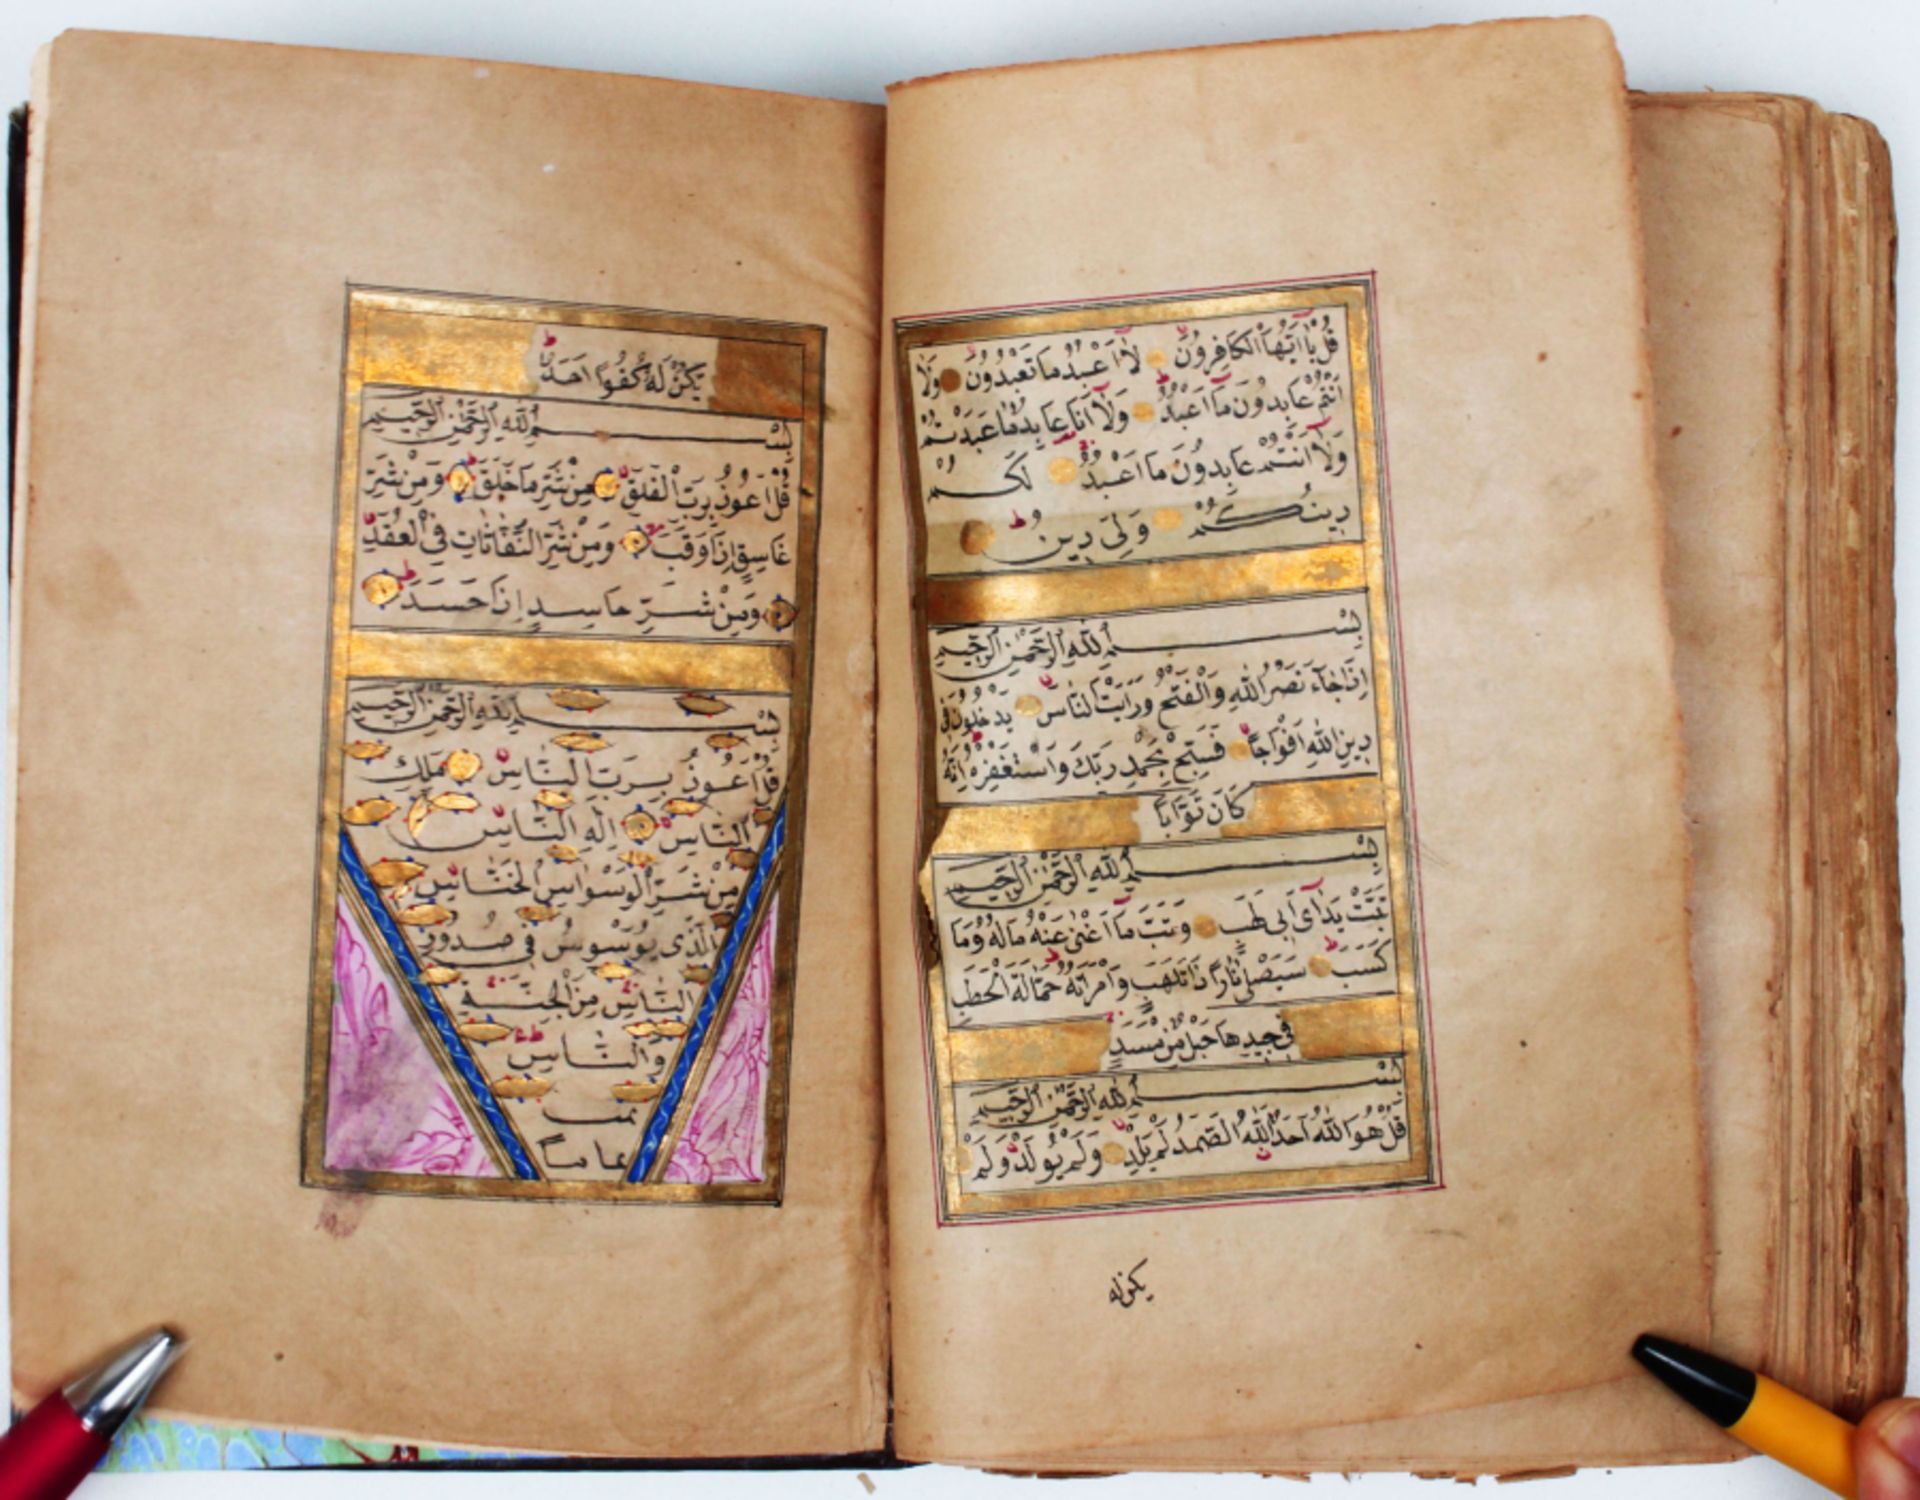 قُلْ يَا اَيُّهَا الْكَافِرُونَ لَا اَعْبُدُ مَا تَعْبُدُونَ وَلَا
اَنْتُمْ عَابِدُونَ مَا اَعْبُدُ وَلَا اَنَا عَابِدٌ مَا عَبَدْتُمْ
وَلَا اَنْتُمْ عَابِدُونَ مَا اَعْبُدُ لَكُمْ
دِينُكُمْ وَلِيَ دِينِ
بِسْمِ اللّٰهِ الرَّحْمٰنِ الرَّحِيمِ
اِذَا جَاءَ نَصْرُ اللّٰهِ وَالْفَتْحُ وَرَاَيْتَ النَّاسَ يَدْخُلُونَ فِى
دِينِ اللّٰهِ اَفْوَاجًا فَسَبِّحْ بِحَمْدِ رَبِّكَ وَاسْتَغْفِرْهُ اِنَّهُ
كَانَ تَوَّابًا
بِسْمِ اللّٰهِ الرَّحْمٰنِ الرَّحِيمِ
تَبَّتْ يَدَا اَبِى لَهَبٍ وَتَبَّ مَا اَغْنٰى عَنْهُ مَالُهُ وَمَا
كَسَبَ سَيَصْلٰى نَارًا ذَاتَ لَهَبٍ وَامْرَاَتُهُ حَمَّالَةَ الْحَطَبِ
فِى جِيدِهَا حَبْلٌ مِنْ مَسَدٍ
بِسْمِ اللّٰهِ الرَّحْمٰنِ الرَّحِيمِ
قُلْ هُوَ اللّٰهُ اَحَدٌ اَللّٰهُ الصَّمَدُ لَمْ يَلِدْ وَلَمْ يُولَدْ وَلَمْ
يكن له
يَكُنْ لَهُ كُفُوًا اَحَدٌ
بِسْمِ اللّٰهِ الرَّحْمٰنِ الرَّحِيمِ
قُلْ اَعُوذُ بِرَبِّ الْفَلَقِ مِنْ شَرِّ مَا خَلَقَ وَمِنْ شَرِّ
غَاسِقٍ اِذَا وَقَبَ وَمِنْ شَرِّ النَّفَّاثَاتِ فِى الْعُقَدِ
وَمِنْ شَرِّ حَاسِدٍ اِذَا حَسَدَ
بِسْمِ اللّٰهِ الرَّحْمٰنِ الرَّحِيمِ
قُلْ اَعُوذُ بِرَبِّ النَّاسِ مَلِكِ
النَّاسِ اِلٰهِ النَّاسِ
مِنْ شَرِّ الْوَسْوَاسِ الْخَنَّاسِ
الَّذِى يُوَسْوِسُ فِى صُدُورِ
النَّاسِ مِنَ الْجِنَّةِ
وَالنَّاسِ
تمت
تماما